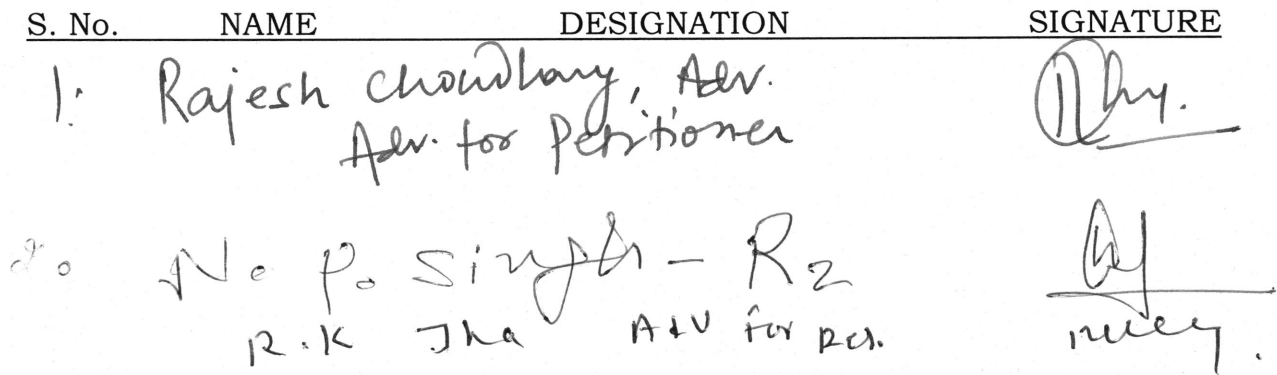 S. No. NAME DESIGNATION SIGNATURE
1. Rajesh Choudhary, Adv.
Adv. for Petitioner
2. N. P. Singh - R2
R.K Jha Adv for Res.